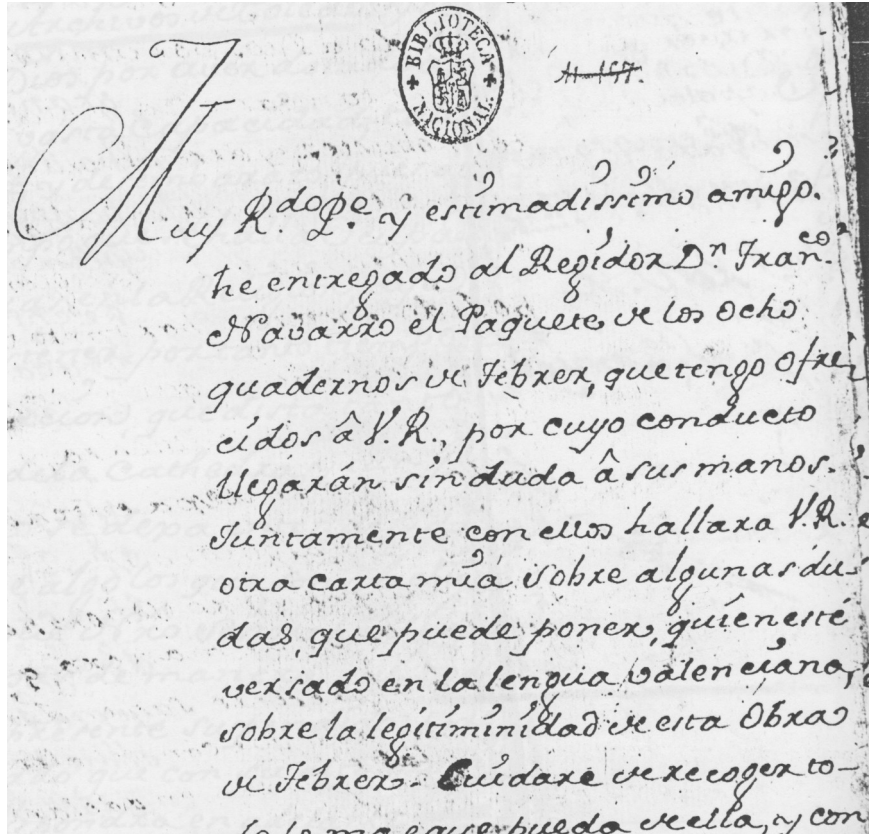 BIBLIOTECA NACIONAL
Muy R.do P.e y estimadissimo amigo.
he entregado al Regidor Dn Fran.co
Navarro el Paquete de los Ocho
quadernos de Febrer, que tengo ofre-
cidos â V.R., por cuyo conducto
llegarán sin duda â sus manos.
Juntamente con ellos hallara V.R.
otra carta mia sobre algunas du-
das, que puede poner, quien esté
versado en la lengua Valenciana,
sobre la legitiminidad de esta Obra
de Febrer. Cuidare de recoger to-
que pueda de ella, y con